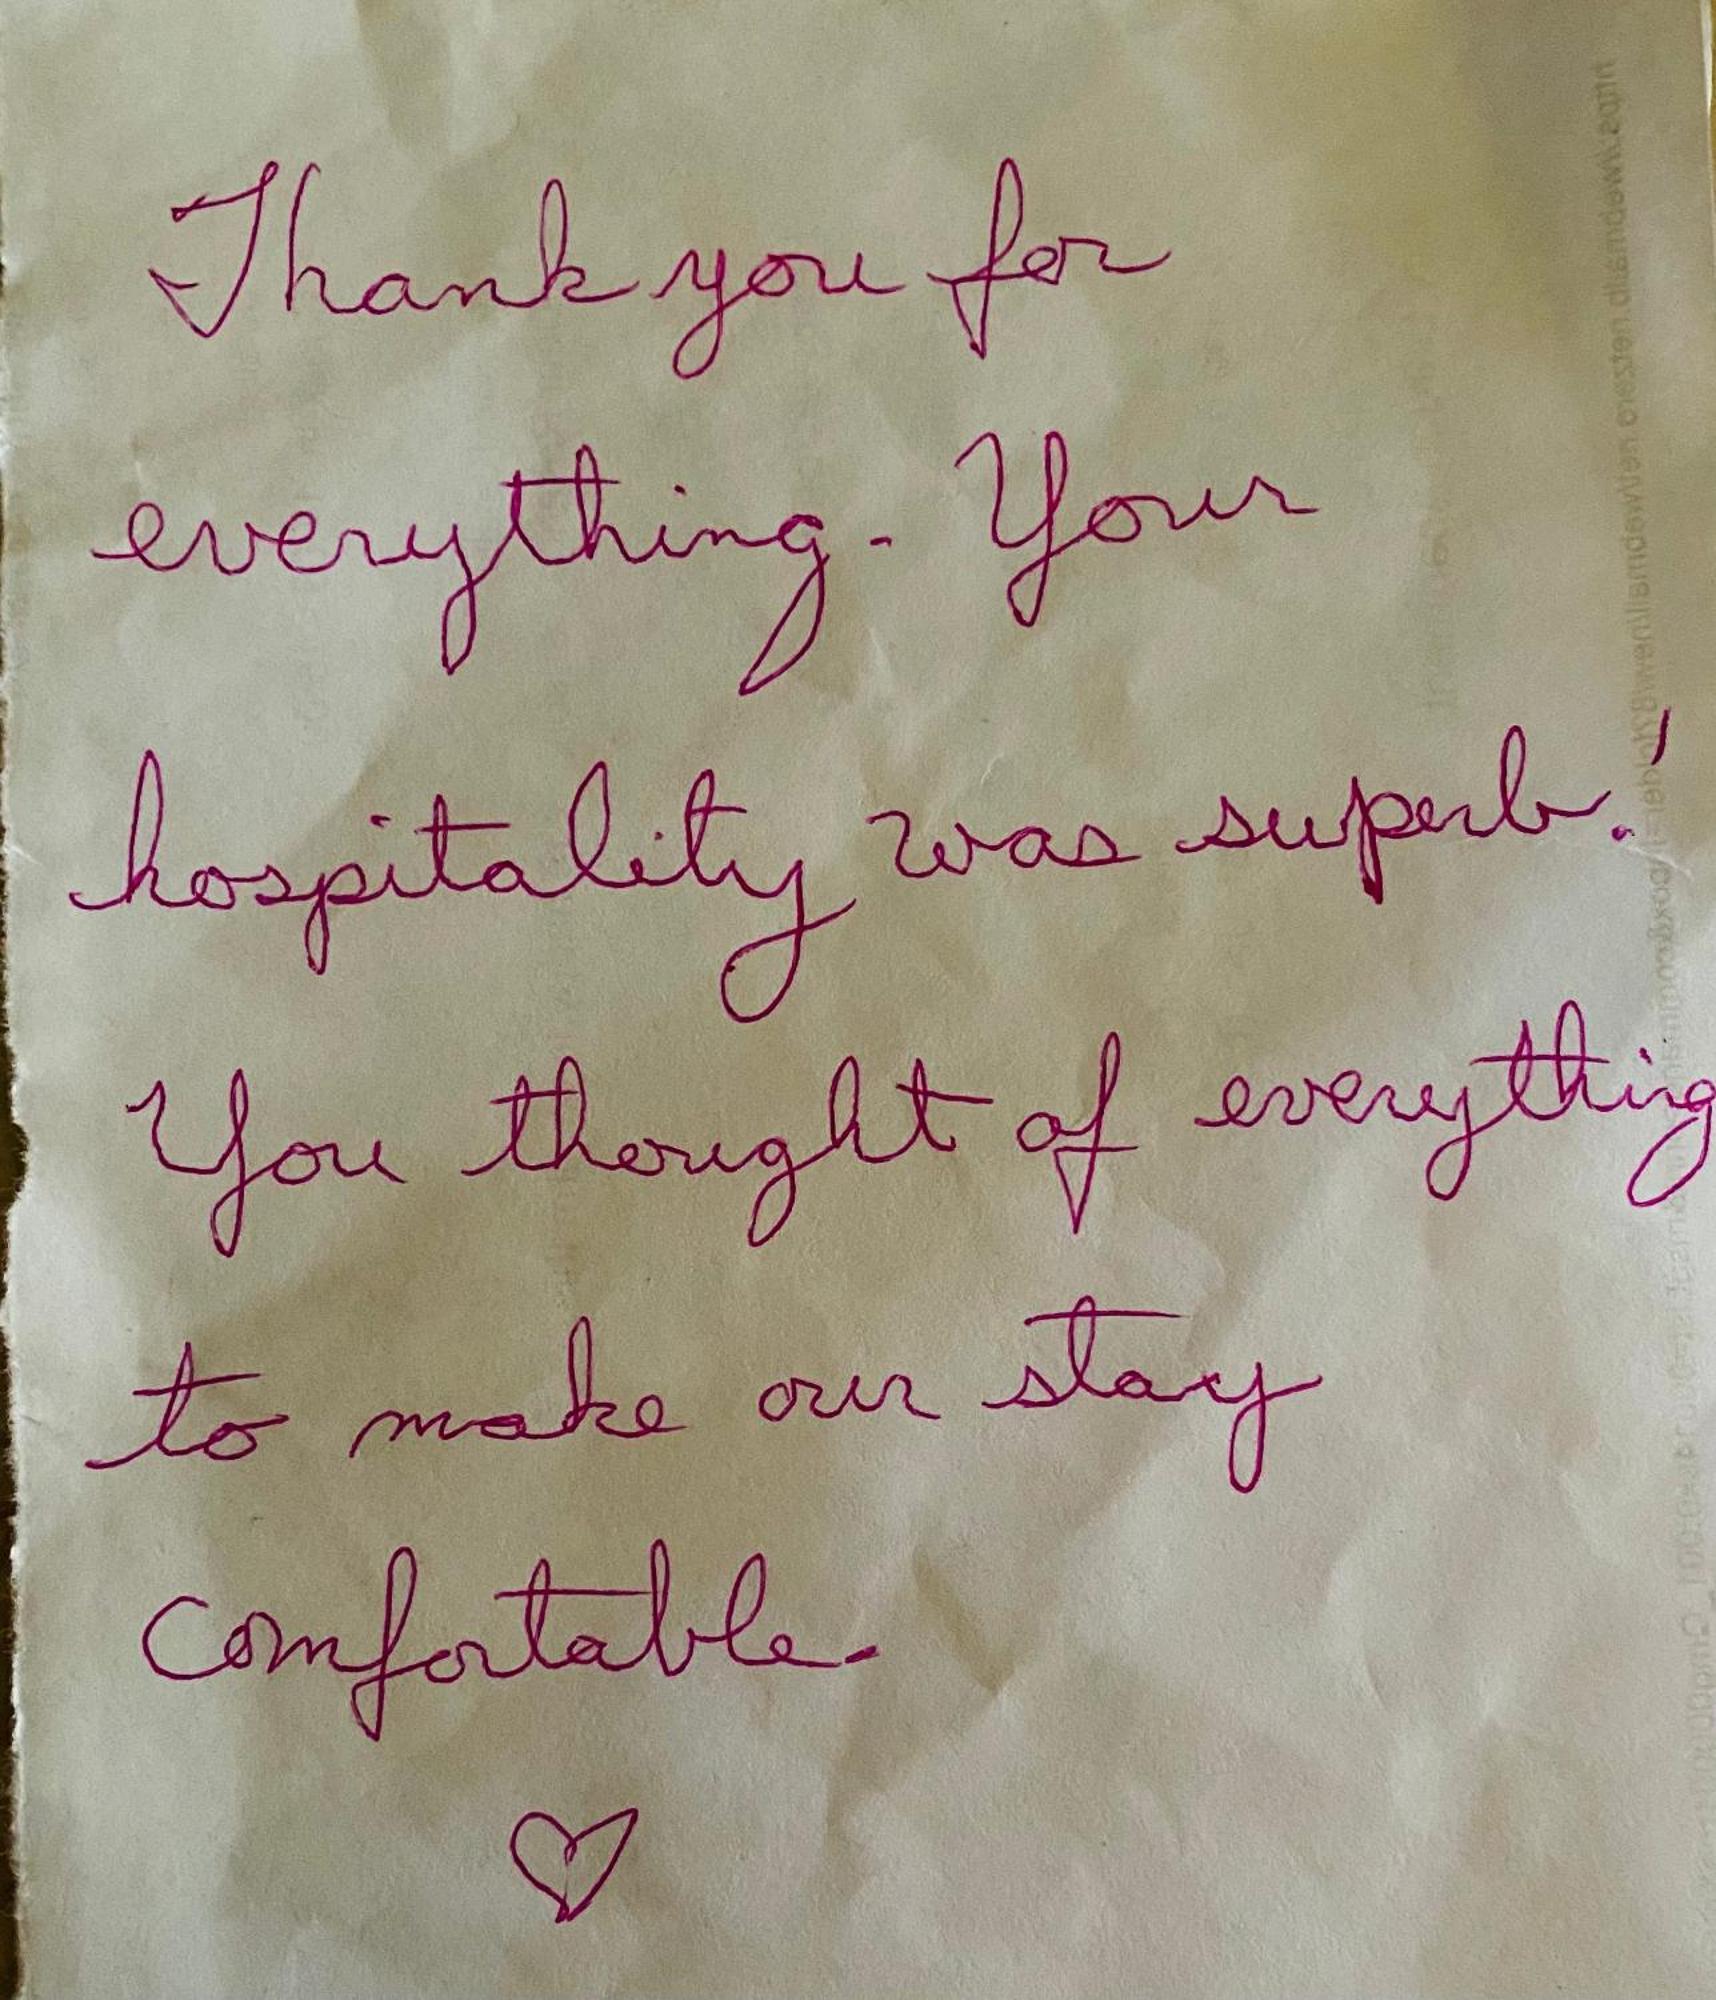 Thank you for
everything. Your
hospitality was superb!
You thought of everything
to make our stay
comfortable.